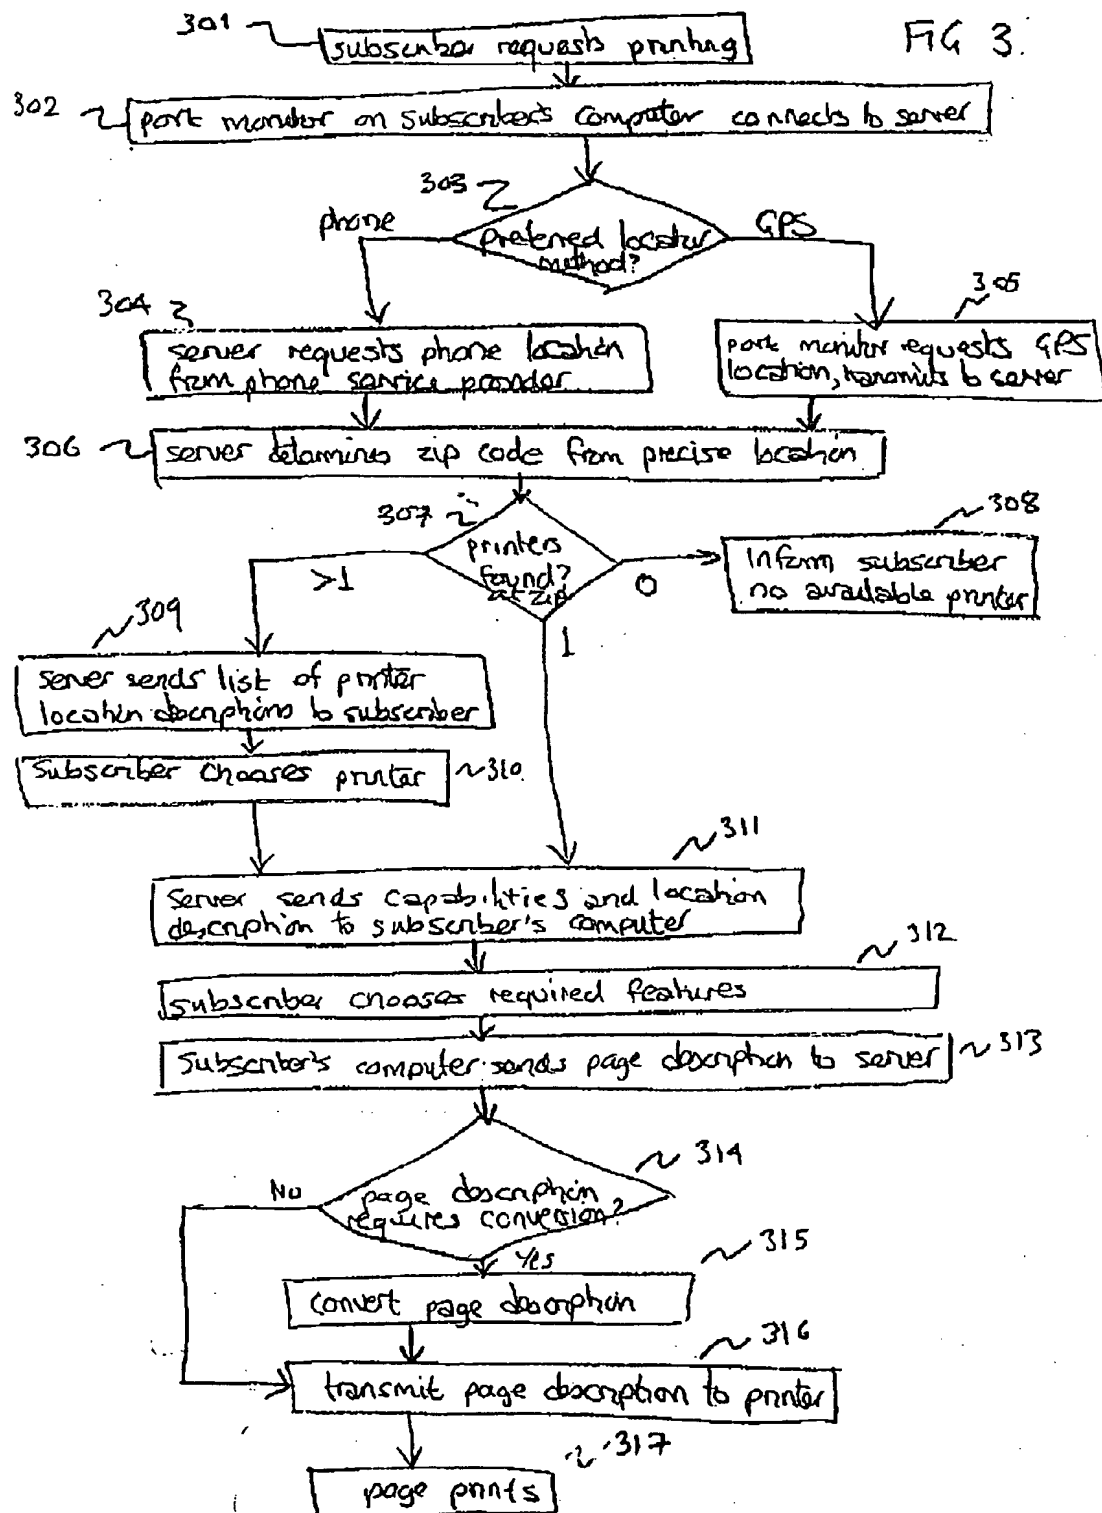 301
subscriber requests printing
FIG 3.
302
port monitor on subscriber's computer connects to server
303
phone
GPS
preferred locator
method?
304
305
server requests phone location
from phone service provider
port monitor requests GPS
location, transmits to server
306
server determines zip code from precise location
307
308
printers
found?
at zip
>1
0
1
Inform subscriber
no available printer
309
server sends list of printer
location descriptions to subscriber
Subscriber chooses printer
310
311
Server sends capabilities and location
description to subscriber's computer
312
subscriber chooses required features
Subscriber's computer sends page description to server
313
314
No
page description
requires conversion?
Yes
315
convert page description
316
transmit page description to printer
317
page prints